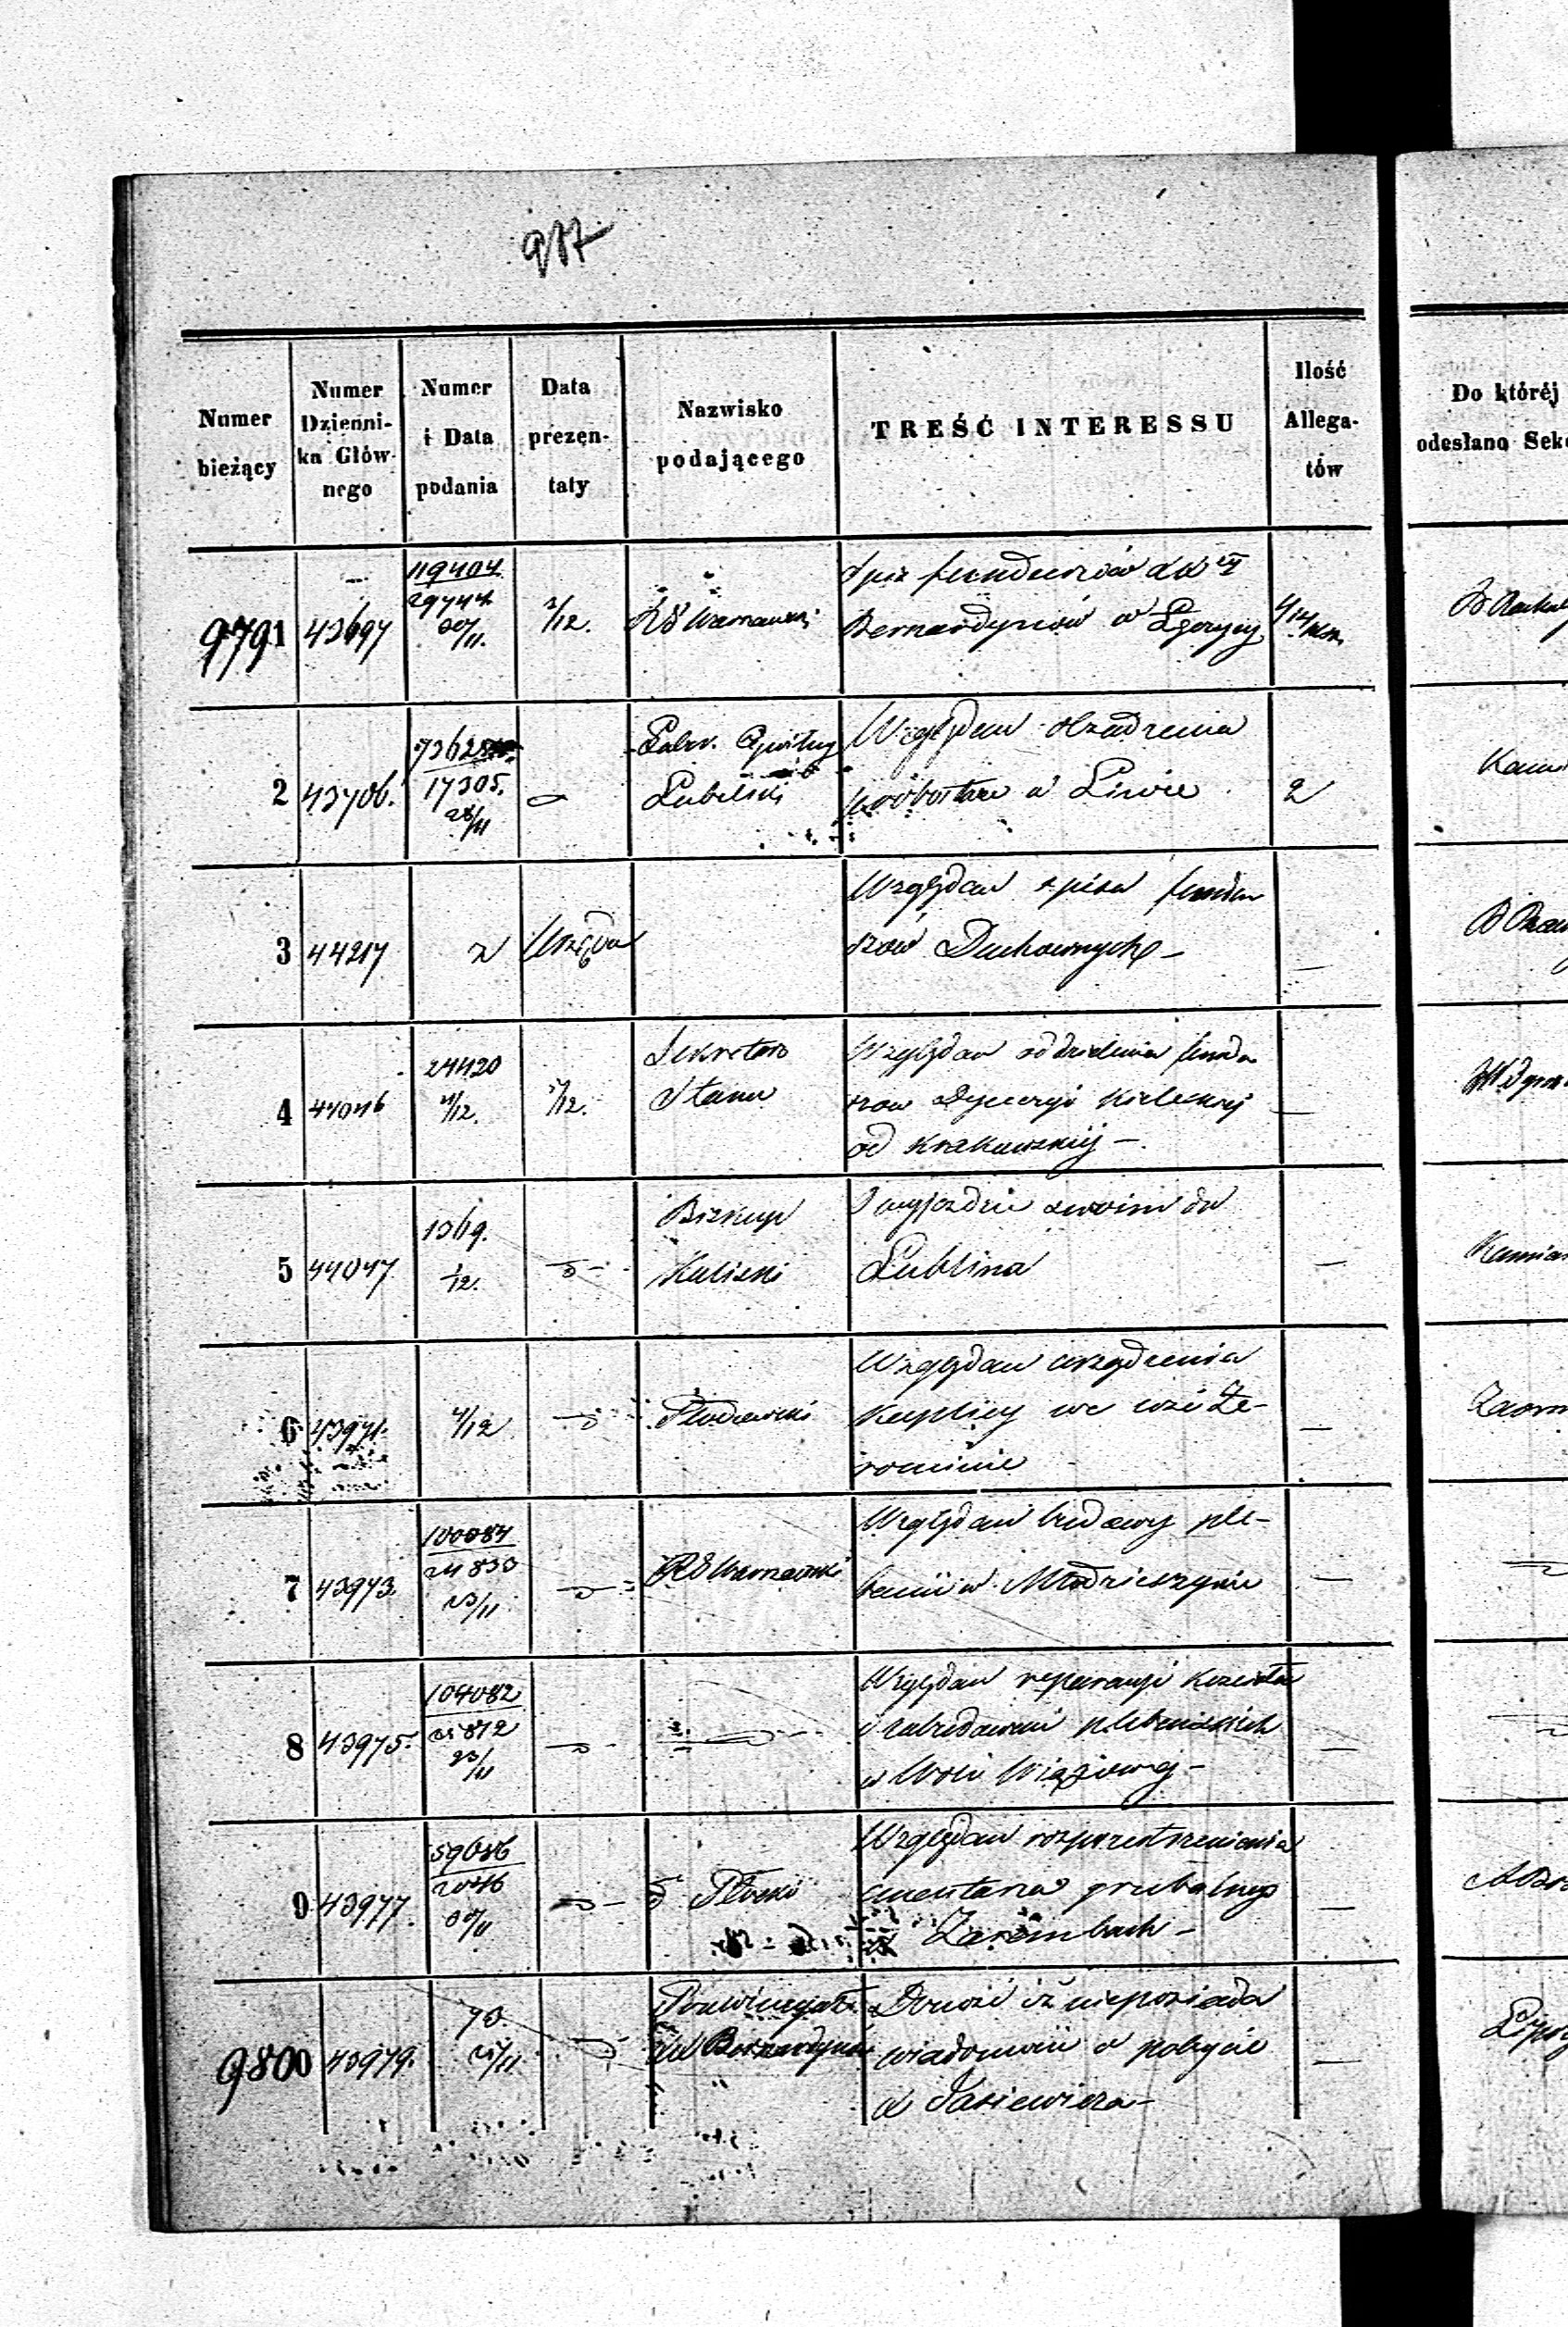 987
Numer bieżący
Numer Dzienni-ka Głów-nego
Numer i Data podania
Data prezen-taty
Nazwisko podającego
TREŚĆ INTERESSU
Ilość Allega-tów
Do któréj
odesłano Sek
9791 43697 119404 29744 30/11. 2/12. RG Warszawski
Spis funduszów XX
Bernardynów w
2 43706. 17305. 28/11 Gubr. Cywilny
Lubelski
Względem obsadzenia
probostwa w Liwie 2
3 44217 z Urzędu
Względem spisu fundu
szów Duchownych –
4 44046 24420 4/12. 5/12. Sekretarz
Stanu
Względem oddzielenia fundu
szow Dyecezyi Kieleckiej
od Krakowskiéj –
5 44047 1369. 1/12. Biskup
Kaliski
O wyjeździe swoim do
Lublina
6 43971. 4/12
Względem urządzenia
kaplicy we wsi Że-
rominie
7 43973. 100084 24833 23/11 RG Warszawski
Względem budowy ple-
banii w Młodzieszynie
8 43975. 104082 25872 23/11
Względem reparacyi kościoła
i zabudowań plebańskich
w Woli Wiązowej –
9 43977. 59086 2046 30/11 Płocki
Względem rozprzestrzenienia
cmentarza grzebalnego
w Zarembach –
9800 43979. 73. 25/11 Prowincyał
XX Bernardynów
Donosi iż nieposiada
wiadomości o pobycie
X Jasiewicza –